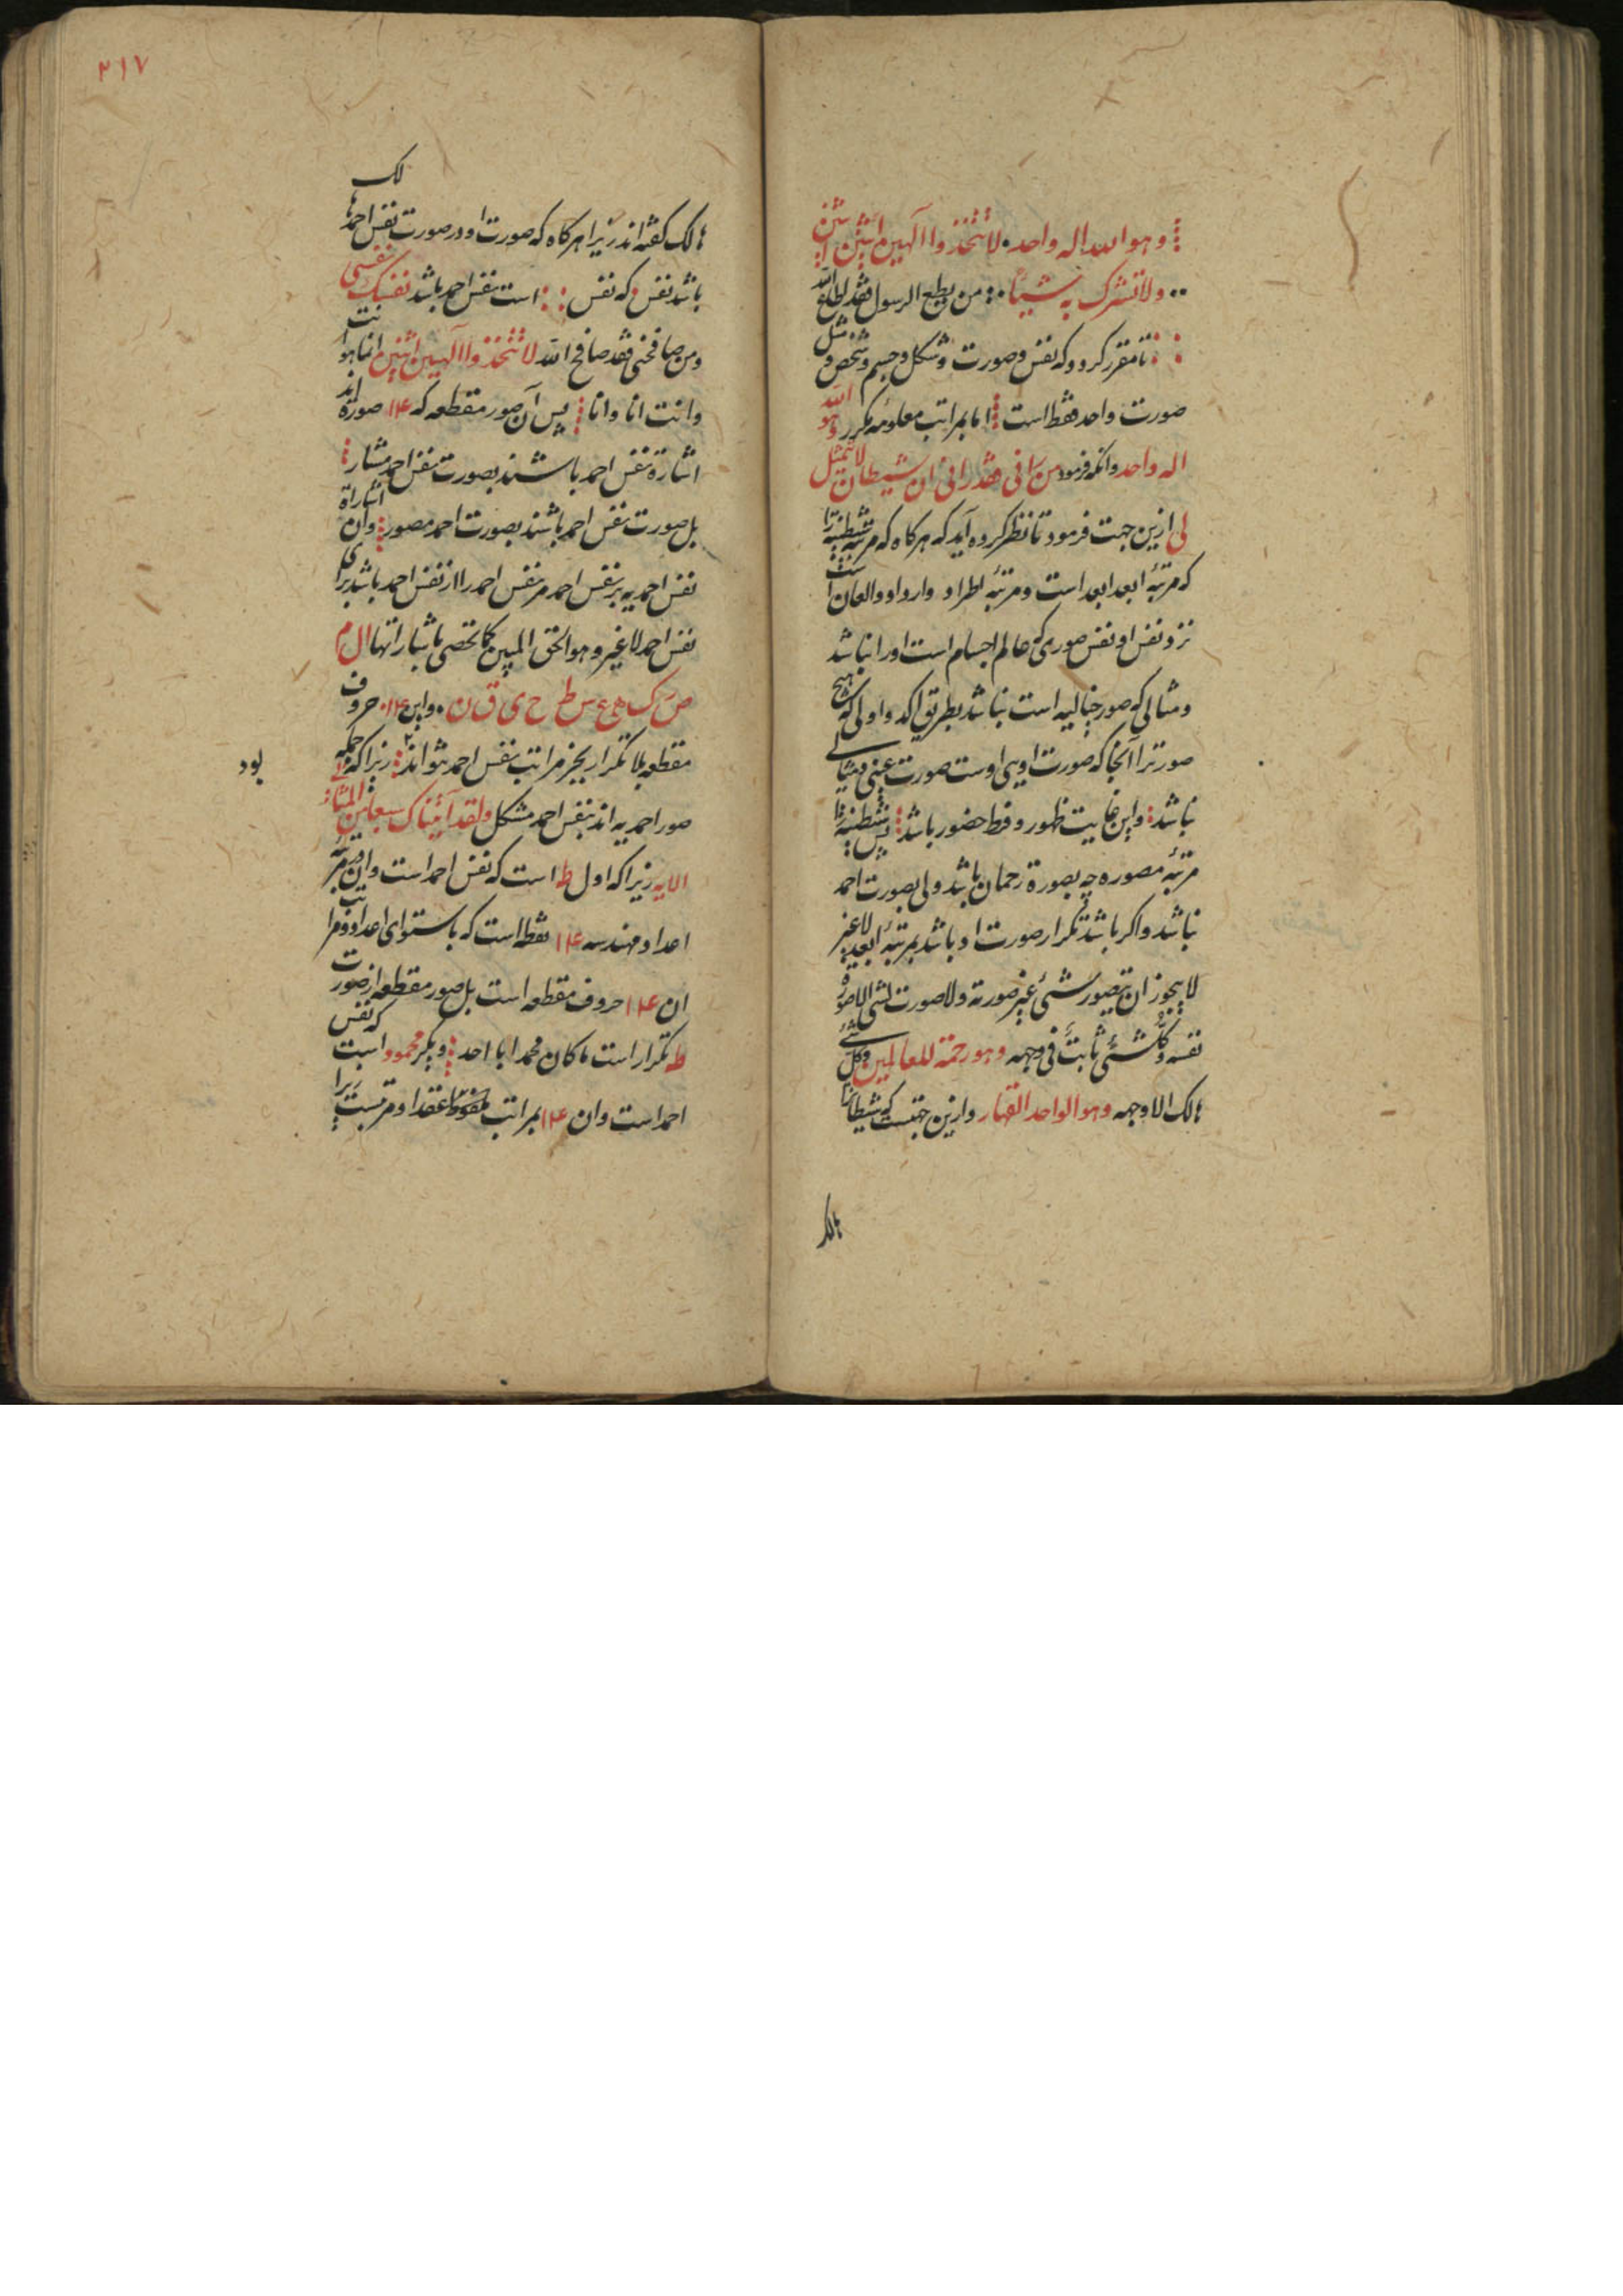 ⁞ وهو الله اله واحد. لا تتخذوا الهین اثنین
.. ولا تشرک به شیئا ∴ من یطع الرسول فقد اطاع الله
تا مقرر کرو و که نفس و صورت و شکل و جسم و شخص و مثل
صورت واحد فقط است ⁞ اما بمراتب معلومه مکرر وهو الله
اله واحد و آنکه فرمود من رانی فقد رانی ان شیطان لا یتمثل
لی ازین جهت فرمود تا نظر کروه آید که هرکاه که مرتبه شیطنیه را
که مرتبهٔ ابعد ابعد است و مرتبهٔ اطراد و ارواد و العان است
نزو نفس او نفس صوری که عالم اجسام است اورا نباشد
و مثالی که صور خیالیه است نباشد بطریق اکد و اولی که هیچ
صورترا آنجا که صورت اویی اوست صورت عینی و مثالی
نباشد ⁞ واین غایت ظهور و فرط حضور باشد ⁞ پس شیطنیه را
مرتبهٔ مصوره چه بصورة رحمان باشد ولی بصورت احمد
نباشد و اکر باشد تکرار صورت او باشد بمرتبهٔ ابعد لا غیر
لا یجوز ان یتصور شئ غیر صورته ولا صورت لشئ الا صورة
نفسه و کل شئ ثابت فی وجهه وهو رحمة للعالمین و کل شئ
هالک الا وجهه وهو الواحد القهار و ازین جهتست که شیطانرا
هالک
٢١٧
لک
هالک کفته اند زیرا هرکاه که صورت او در صورت نفس احمد ها
باشد نفس که نفس ∴ است نفس احمد باشد نفسک نفسی
ومن صافحنی فقد صافح الله لا تتخذوا الهین اثنین انا هو انت
وانت انا وانا ⁞ پس آن صور مقطعه که ١٤ صورة اند
اشارة نفس احمد باشند بصورت نفس احمد مشار ⁞
بل صورت نفس احمد باشند بصورت احمد مصور ⁞ و آن اشارة
نفس احمدیه بر نفس احمد مر نفس احمد را از نفس احمد باشد برای
نفس احمد لا غیر وهو الحق المبین کما تحصی باشاراتها ال م
ص ر ک ه ع س ط ح ی ق ن. واین ١٤ حروف
مقطعه بلا تکرار بجز مراتب نفس احمد نتواند ⁞ زیرا که جمله
بود
صور احمدیه اند بنفس احمد مشکل ولقد آتیناک سبعا من المثانی
الایه زیرا که اول طه است که نفس احمد است و آن در مرتبهٔ
اعداد مهندسه ١٤ نقطه است که باستوای اعداد و مراتب
ان ١٤ حروف مقطعه است بل صور مقطعه از صورت
طه تکرار است ما کان محمد ابا احد ⁞ و یکر محمود است که نفس
احمد است وان ١٤ بمراتب عقد او مرتبست زیرا